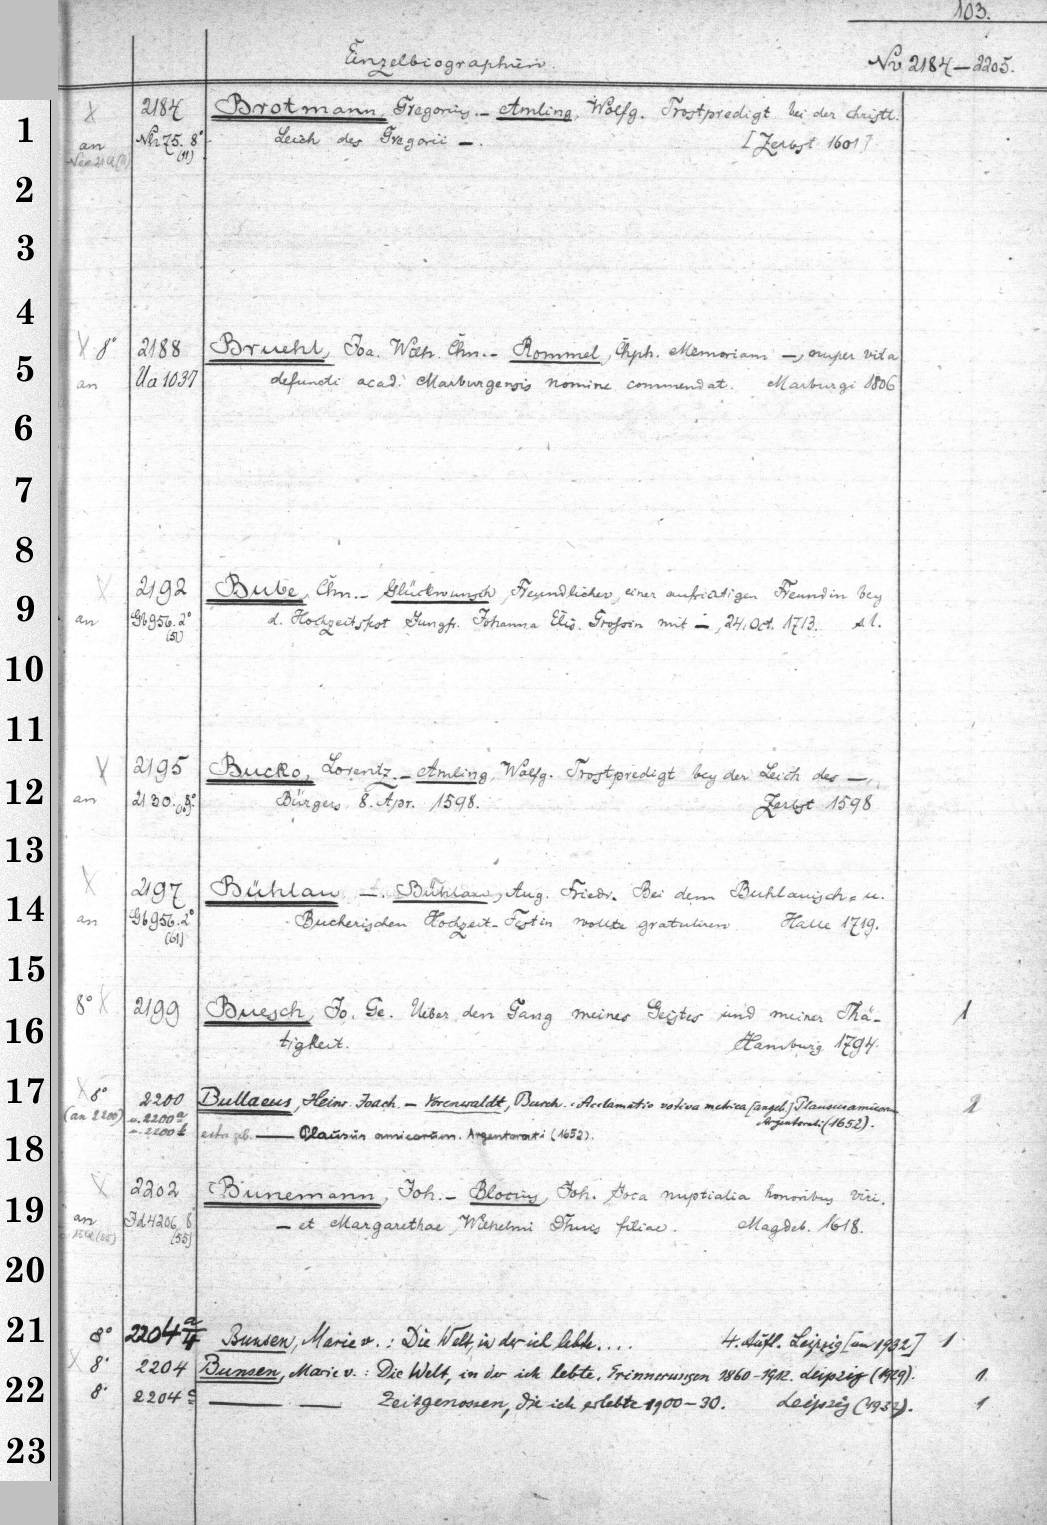 103.
Einzelbiographien. Nr 2184-2205.
1 2184 Brotmann, Gregorius. - Amling, Wolfg. Trostpredigt bei der christl.
an 8° (11) Leich des Gregorii -. [Zerbst 1601]
2
3
4
8° 2188 Bruehl, Joa. Wilh. Chn. - Rommel, Chph. Memoriam -, nuper vita
5 an Ua 1037 defuncti acad. Marburgensis nomine commendat. Marburgi 1806
6
7
8
2192 Bube, Chn. - Glückwunsch, Freundlicher, einer aufrichtigen Freundin bey
9 an Gb 956. 2° (51) d. Hochzeitsfest Jungfr. Johanna Elis. Grossin mit -, 24. Oct. 1713. s. l.
10
11
2195 Bucko, Lorentz. - Amling, Wolfg. Trostpredigt bey der Leich des -,
12 an 2130. 8° Bürgers 8. Apr. 1598. Zerbst 1598
13
2197 Bühlau, -. Bühlau, Aug. Friedr. Bei dem Buhlauisch- u.
14 an Gb 956. 2° (61) Bucherischen Hochzeit-Festin wollte gratuliren Halle 1719.
15
8° 2199 Buesch, Jo. Ge. Ueber den Gang meines Geistes und meiner Thä- 1
16 tigkeit. Hamburg 1794.
17 8° 2200 Bullaeus, Heinr. Joach. - Vorenwaldt, Burch. Acclamatio votiva metrica [angeb.] Plausus amicorum 2
(an 2200) u. 2200a Argentorati (1652).
u. 2200b - Plausus amicorum. Argentorati (1652).
18
2202 Bünemann, Joh. - Blocius, Joh. Joca nuptialia honoribus viri.
19 an Id 4206, 8 (55) - et Margarethae, Wilhelmi Thuis filiae. Magdeb. 1618.
20
21 8° 2204 a/4 Bunsen, Marie v.: Die Welt, in der ich lebte.... 4. Aufl. Leipzig [um 1932] 1
8° 2204 Bunsen, Marie v.: Die Welt, in der ich lebte. Erinnerungen 1860-1912. Leipzig (1929). 1
22 8° 2204 c - - Zeitgenossen, die ich erlebte 1900-30. Leipzig (1932). 1
23